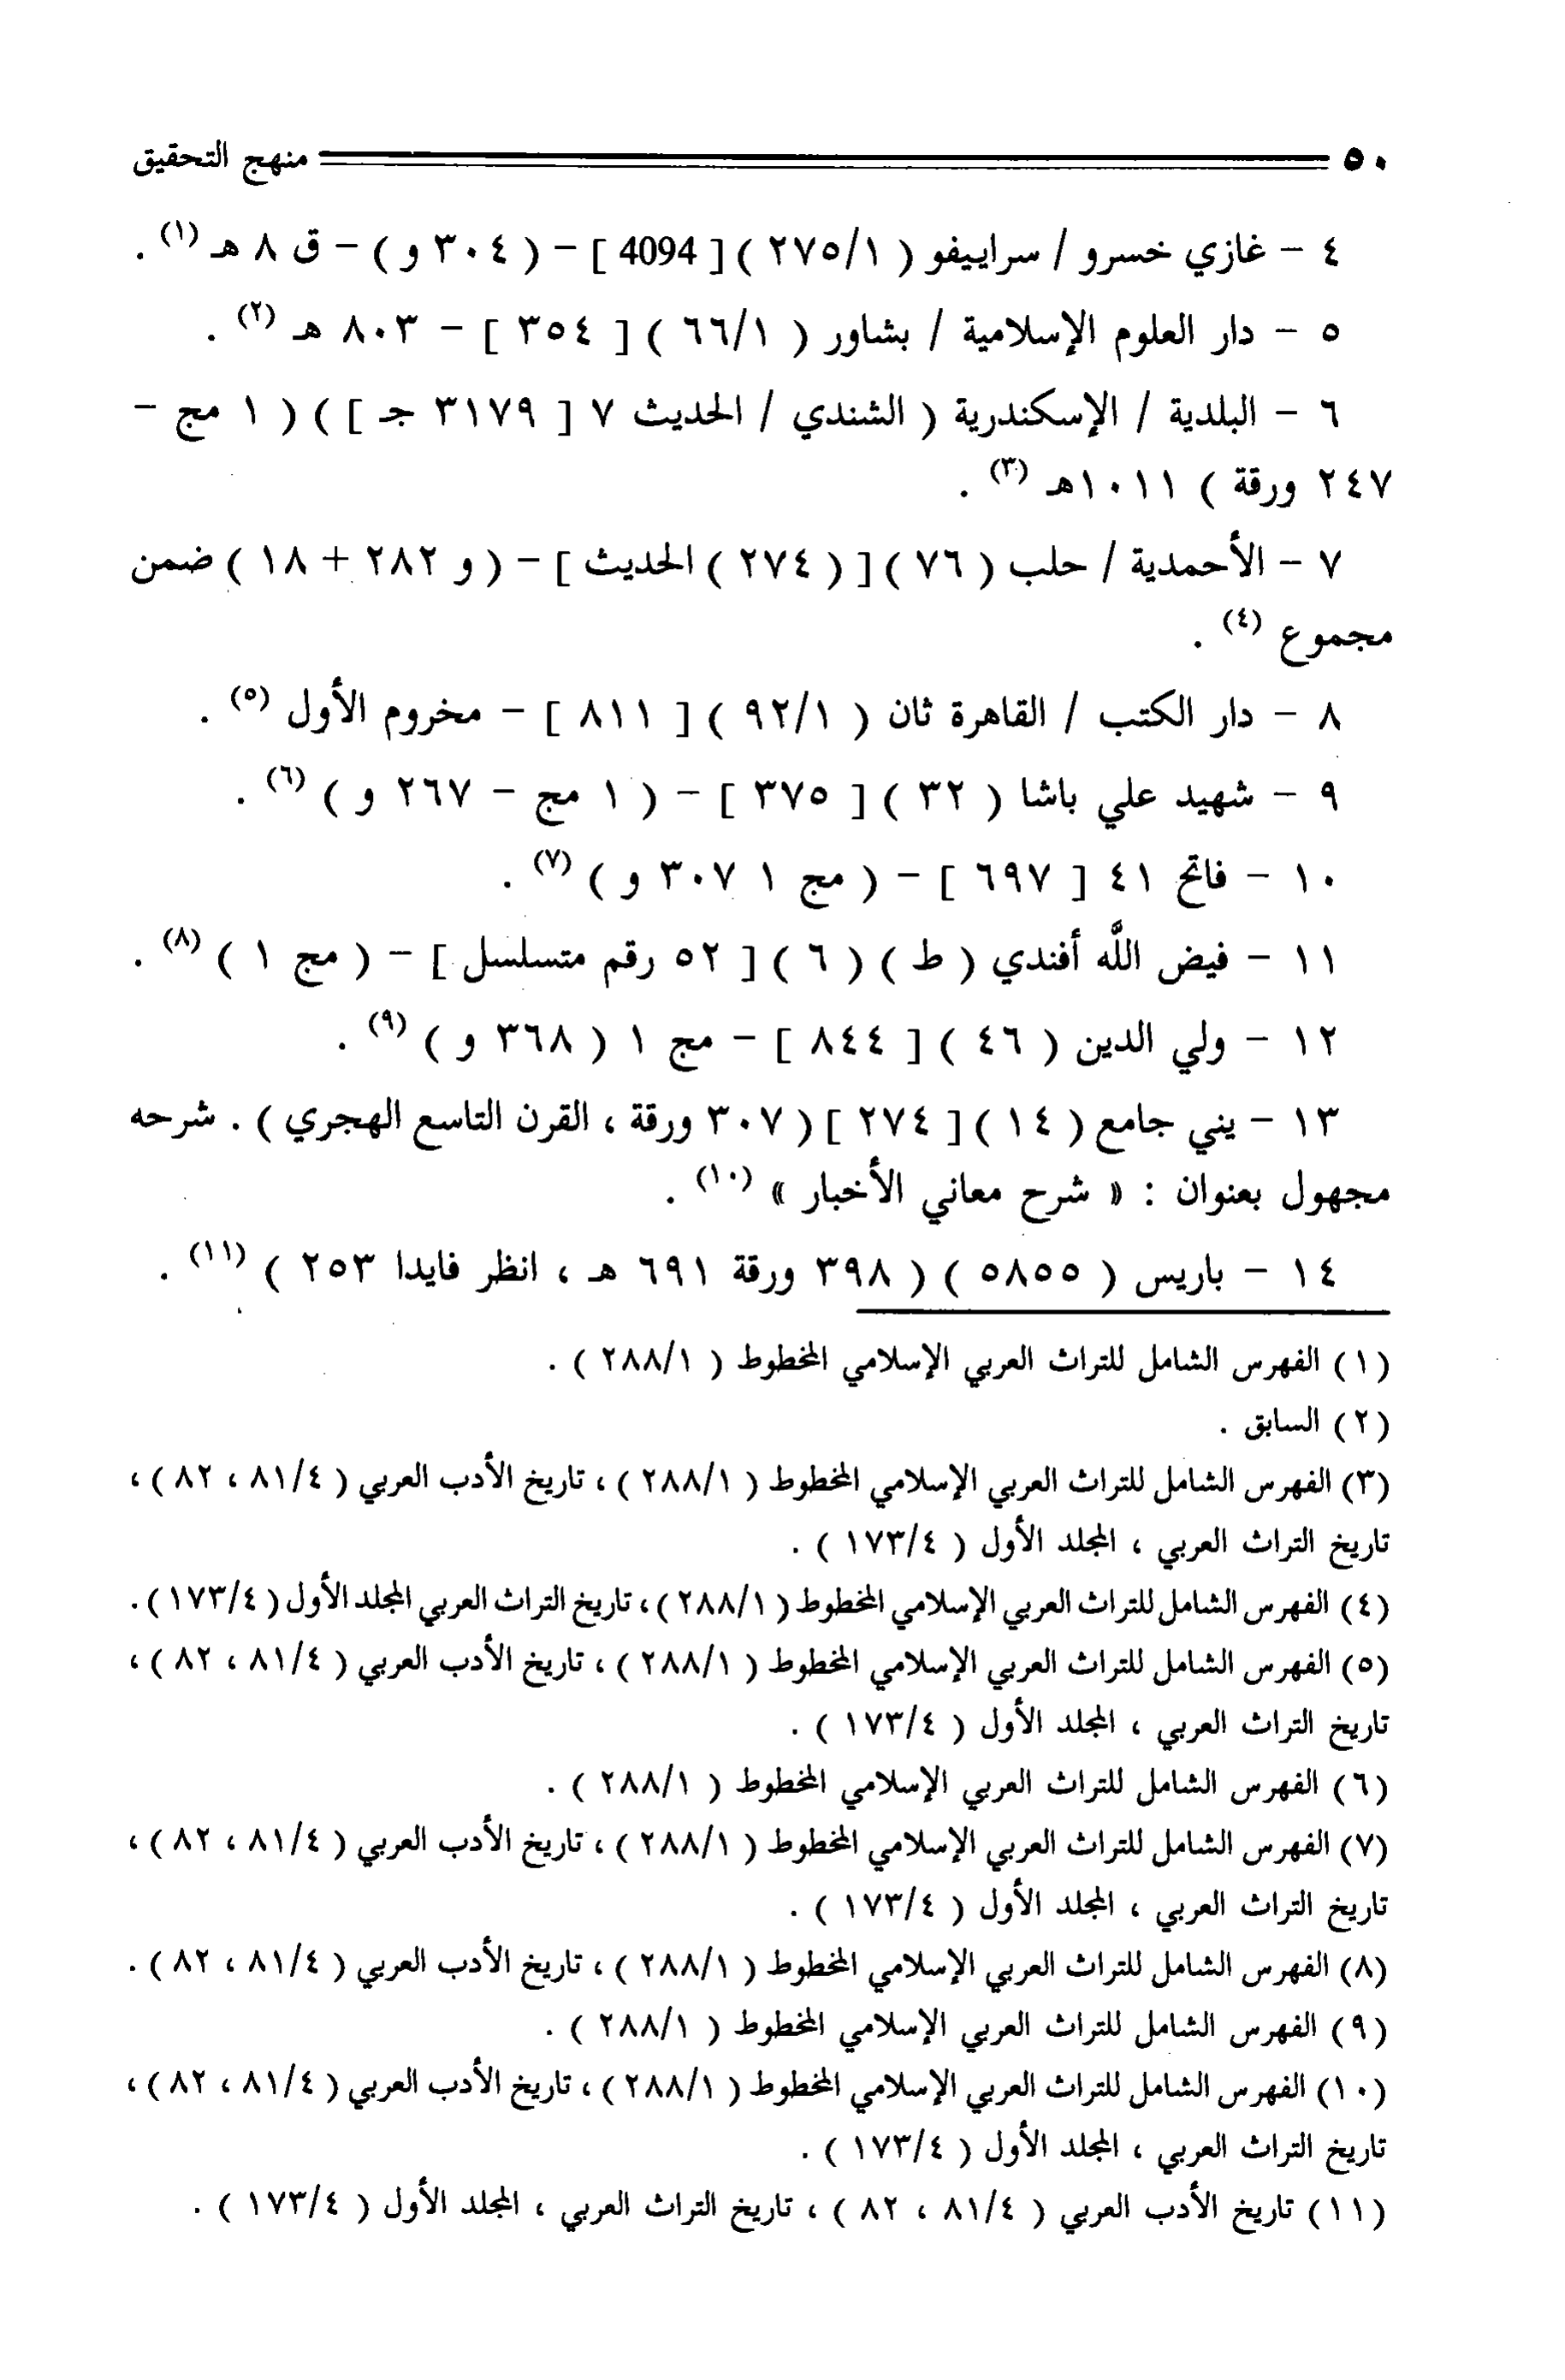 ٥٠ منهج التحقيق
٤ - غازي خسرو / سراييفو ( ٢٧٥/١ ) [ 4094 ] - ( ٣٠٤ و ) - ق ٨ هـ (١) .
٥ - دار العلوم الإسلامية / بشاور ( ٦٦/١ ) [ ٣٥٤ ] - ٨٠٣ هـ (٢) .
٦ - البلدية / الإسكندرية ( الشندي / الحديث ٧ [ ٣١٧٩ جـ ] ) ( ١ مج -
٢٤٧ ورقة ) ١٠١١هـ (٣) .
٧ - الأحمدية / حلب ( ٧٦ ) [ ( ٢٧٤ ) الحديث ] - ( و ٢٨٢ + ١٨ ) ضمن
مجموع (٤) .
٨ - دار الكتب / القاهرة ثان ( ٩٢/١ ) [ ٨١١ ] - مخروم الأول (٥) .
٩ - شهيد علي باشا ( ٣٢ ) [ ٣٧٥ ] - ( ١ مج - ٢٦٧ و ) (٦) .
١٠ - فاتح ٤١ [ ٦٩٧ ] - ( مج ١ ٣٠٧ و ) (٧) .
١١ - فيض اللَّه أفندي ( ط ) ( ٦ ) [ ٥٢ رقم متسلسل ] - ( مج ١ ) (٨) .
١٢ - ولي الدين ( ٤٦ ) [ ٨٤٤ ] - مج ١ ( ٣٦٨ و ) (٩) .
١٣ - يني جامع ( ١٤ ) [ ٢٧٤ ] ( ٣٠٧ ورقة ، القرن التاسع الهجري ) . شرحه
مجهول بعنوان : « شرح معاني الأخبار » (١٠) .
١٤ - باريس ( ٥٨٥٥ ) ( ٣٩٨ ورقة ٦٩١ هـ ، انظر فايدا ٢٥٣ ) (١١) .
(١) الفهرس الشامل للتراث العربي الإسلامي المخطوط ( ٢٨٨/١ ) .
(٢) السابق .
(٣) الفهرس الشامل للتراث العربي الإسلامي المخطوط ( ٢٨٨/١ ) ، تاريخ الأدب العربي ( ٨١/٤ ، ٨٢ ) ،
تاريخ التراث العربي ، المجلد الأول ( ١٧٣/٤ ) .
(٤) الفهرس الشامل للتراث العربي الإسلامي المخطوط ( ٢٨٨/١ ) ، تاريخ التراث العربي المجلد الأول ( ١٧٣/٤ ) .
(٥) الفهرس الشامل للتراث العربي الإسلامي المخطوط ( ٢٨٨/١ ) ، تاريخ الأدب العربي ( ٨١/٤ ، ٨٢ ) ،
تاريخ التراث العربي ، المجلد الأول ( ١٧٣/٤ ) .
(٦) الفهرس الشامل للتراث العربي الإسلامي المخطوط ( ٢٨٨/١ ) .
(٧) الفهرس الشامل للتراث العربي الإسلامي المخطوط ( ٢٨٨/١ ) ، تاريخ الأدب العربي ( ٨١/٤ ، ٨٢ ) ،
تاريخ التراث العربي ، المجلد الأول ( ١٧٣/٤ ) .
(٨) الفهرس الشامل للتراث العربي الإسلامي المخطوط ( ٢٨٨/١ ) ، تاريخ الأدب العربي ( ٨١/٤ ، ٨٢ ) .
(٩) الفهرس الشامل للتراث العربي الإسلامي المخطوط ( ٢٨٨/١ ) .
(١٠) الفهرس الشامل للتراث العربي الإسلامي المخطوط ( ٢٨٨/١ ) ، تاريخ الأدب العربي ( ٨١/٤ ، ٨٢ ) ،
تاريخ التراث العربي ، المجلد الأول ( ١٧٣/٤ ) .
(١١) تاريخ الأدب العربي ( ٨١/٤ ، ٨٢ ) ، تاريخ التراث العربي ، المجلد الأول ( ١٧٣/٤ ) .